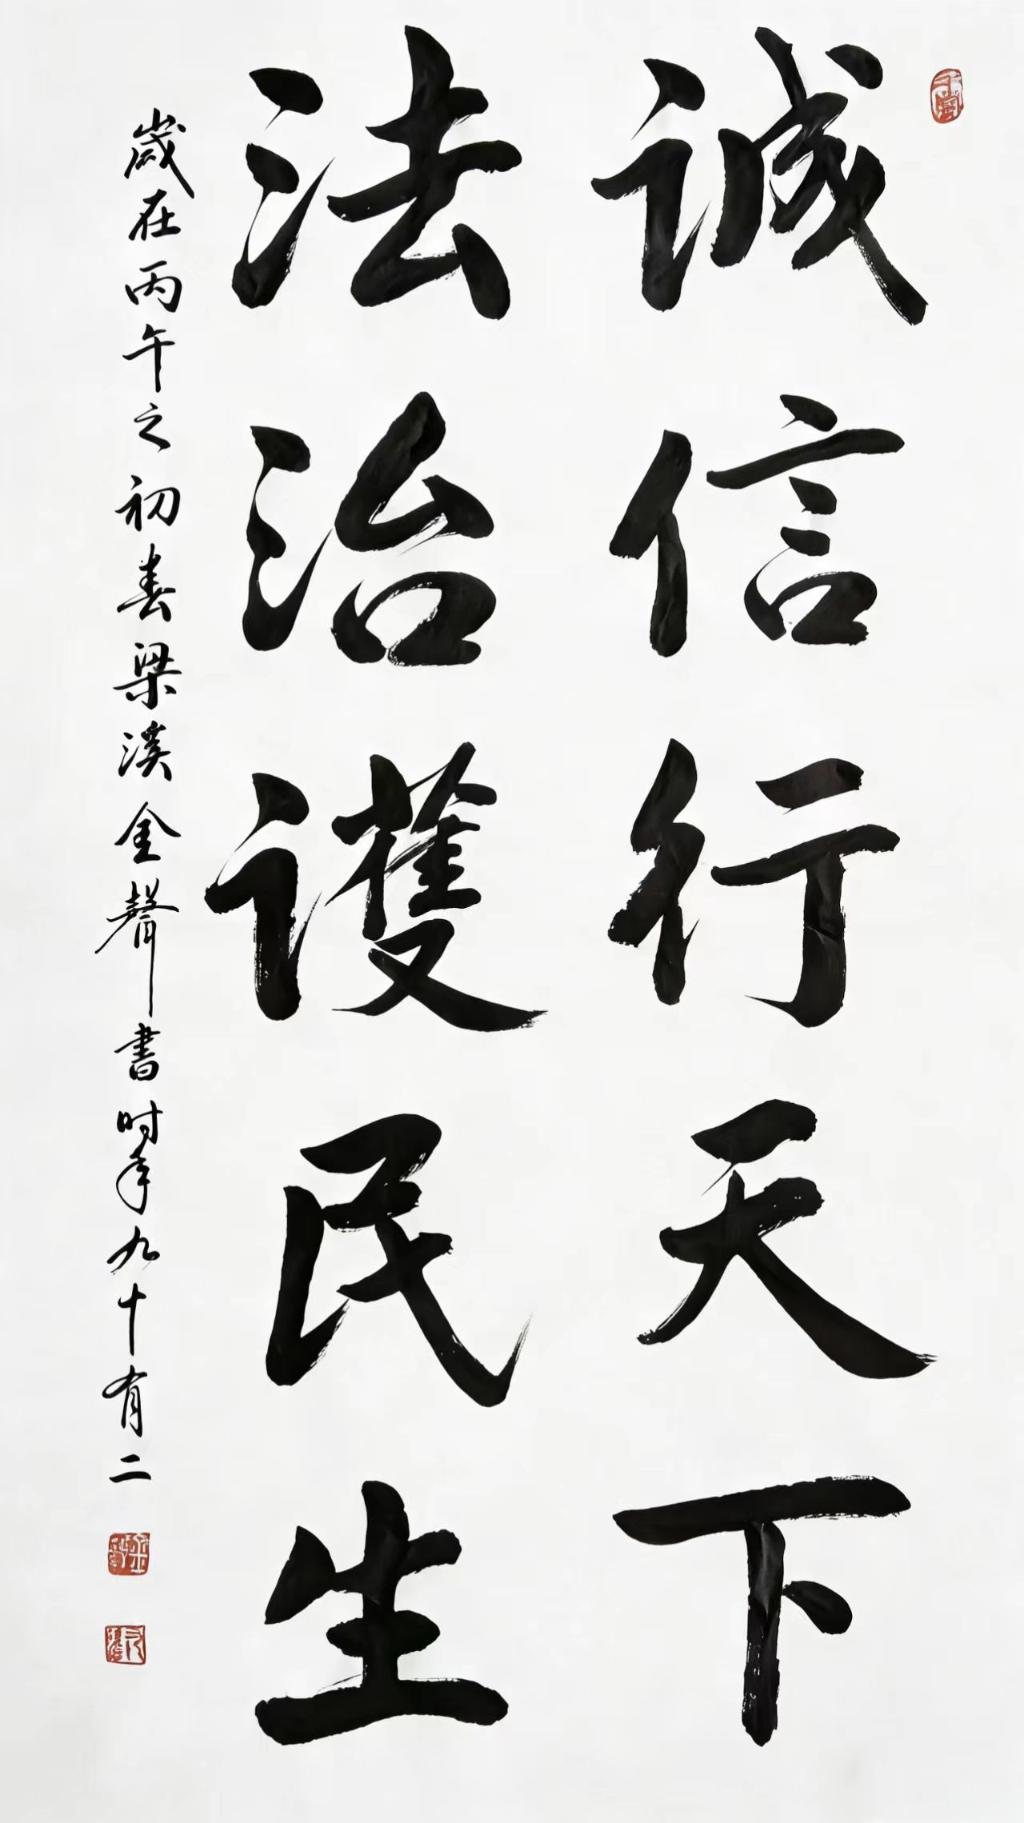 诚信行天下
法治護民生
歲在丙午之初春梁溪金聲書时年九十有二